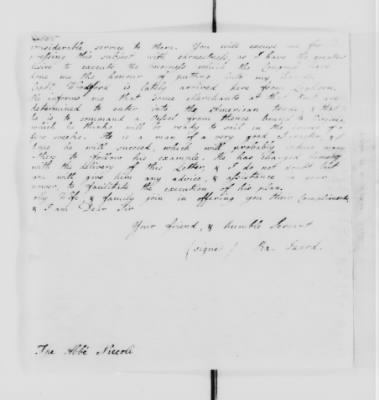 considerable service to them. You will excuse me for
pressing this subject with earnestness, as I have the greatest
desire to execute the business which the Congress have
done me the honour of putting into my hands.
Capt. Woodford is lately arrived here from Leghorn,
He informs me that some merchants at that port are
determined to enter into the American trade, & that
he is to command a Vessel from thence bound to
which he thinks will be ready to sail in the course of a
few weeks. He is a man of a very good character,
hope he will succeed, which will probably induce many
others to follow his example. He has charged himself
with the delivery of this Letter, & I do not doubt but
you will give him any advice, & assistance in your
power, to facilitate the execution of his plan.
My Wife, & family join in offering you their Compliments,
& I am Dear Sir
Your friend, & humble Servant
(signed) Ra. Izard.
The Abbé Niccoli